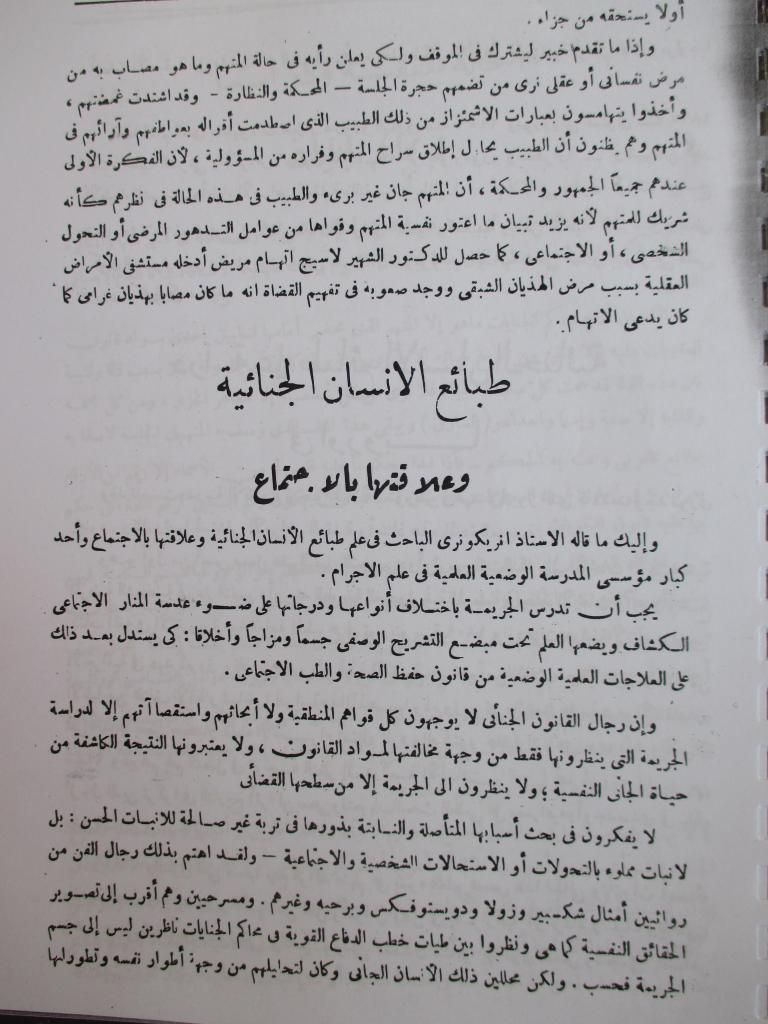 أولا يستحقه من جزاء .
وإذا ما تقدم خبير ليشترك فى الموقف ولكى يعلن رأيه فى حالة المتهم وما هو مصاب به من
مرض نفسانى أو عقلى نرى من تضمهم حجرة الجلسة — المحكمة والنظارة - وقد اشتدت غمضتهم ،
وأخذوا يتهامسون بعبارات الاشمئزاز من ذلك الطبيب الذى اصطدمت أقواله بعواطفهم وآرائهم فى
المتهم وهم يظنون أن الطبيب يحاول إطلاق سراح المتهم وفراره من المسؤولية ، لأن الفكرة الأولى
عندهم جميعاً الجمهور والمحكمة ، أن المتهم جان غير برىء والطبيب فى هذه الحالة فى نظرهم كأنه
شريك للمتهم لأنه يريد تبيان ما اعتور نفسية المتهم وقواها من عوامل التدهور المرضى أو التحول
الشخصى ، أو الاجتماعى ، كما حصل للدكتور الشهير لاسيج اتهام مريض أدخله مستشفى الأمراض
العقلية بسبب مرض الهذيان الشبقى ووجد صعوبة فى تفهيم القضاة انه ما كان مصابا بهذيان غرامى كما
كان يدعى الاتهام .
طبائع الانسان الجنائية
وعلاقتها بالاجتماع
وإليك ما قاله الاستاذ انريكو نرى الباحث فى علم طبائع الأنسان الجنائية وعلاقتها بالاجتماع وأحد
كبار مؤسسى المدرسة الوضعية العلمية فى علم الاجرام .
يجب أن تدرس الجريمة باختلاف أنواعها ودرجاتها على ضوء عدسة المنار الاجتماعى
الكشاف ويضعها العلم تحت مبضع التشريح الوصفى جسماً ومزاجاً وأخلاقا : كى يستدل بعد ذلك
على العلاجات العلمية الوضعية من قانون حفظ الصحة والطب الاجتماعى .
وإن رجال القانون الجنائى لا يوجهون كل قواهم المنطقية ولا أبحاثهم واستقصاآتهم إلا لدراسة
الجريمة التى ينظرونها فقط من وجهة مخالفتها لمواد القانون ، ولا يعتبرونها النتيجة الكاشفة من
حياة الجانى النفسية ؛ ولا ينظرون الى الجريمة إلا من سطحها القضائى
لا يفكرون فى بحث أسبابها المتأصلة والنابتة بذورها فى تربة غير صالحة للانبات الحسن : بل
لانبات مملوء بالتحولات أو الاستحالات الشخصية والاجتماعية — ولقد اهتم بذلك رجال الفن من
روائيين أمثال شكسبير وزولا ودويستوفكس وبرحيه وغيرهم . ومسرحيين وهم أقرب إلى تصوير
الحقائق النفسية كما هى ونظروا بين طيات خطب الدفاع القوية فى محاكم الجنايات ناظرين ليس إلى جسم
الجريمة فحسب . ولكن محللين ذلك الأنسان الجانى وكان لتحايلهم من وجهة أطوار نفسه وتطورلها